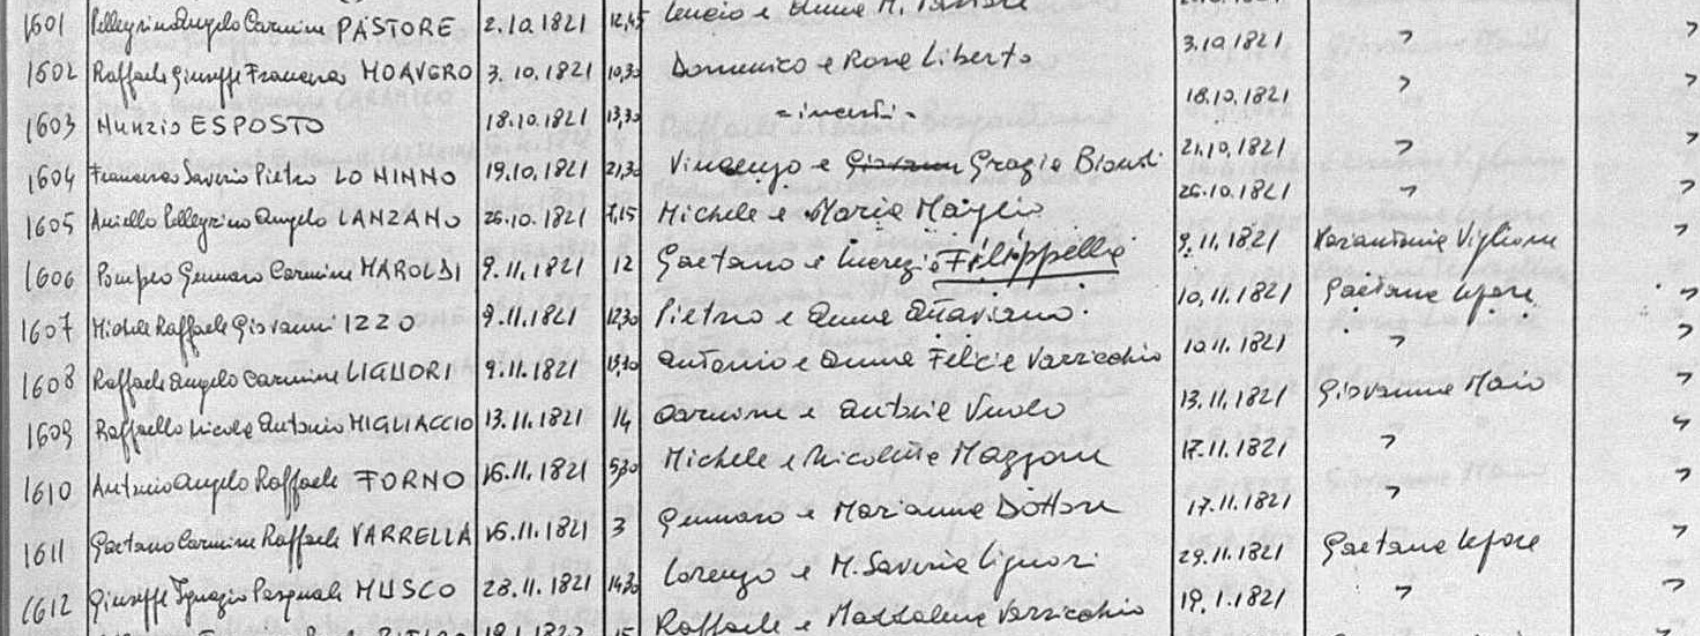 1601 Pellegrino Angelo Carmine PASTORE 2.10.1821 12,45 Lucio e Anna M. Pastore
1602 Raffaele Giuseppe Francesco MOAVERO 3.10.1821 10,30 Domenico e Rosa Liberto 3.10.1821 "
1603 Nunzio ESPOSTO 18.10.1821 13,30 - incerti - 18.10.1821 "
1604 Francesco Saverio Pietro LO NINNO 19.10.1821 21,30 Vincenzo e Giovann Grazia Biondi 21.10.1821 "
1605 Aniello Pellegrino Angelo LANZANO 26.10.1821 7,15 Michele e Maria Maiglio 26.10.1821 "
1606 Pompeo Gennaro Carmine MAROLDI 9.11.1821 12 Gaetano e Lucrezia Filippella 9.11.1821 Mariantonia Viglione
1607 Michele Raffaele Giovanni IZZO 9.11.1821 12,30 Pietro e Anna Attaviano 10.11.1821 Gaetana Lepore "
1608 Raffaele Angelo Carmine LIGUORI 9.11.1821 Antonio e Anna Felicia Varricchio 10.11.1821 "
1609 Raffaello Nicola Antonio MIGLIACCIO 13.11.1821 14 Carmine e Antonia Vuolo 13.11.1821 Giovanna Maio "
1610 Antonio Angelo Raffaele FORNO 16.11.1821 5,30 Michele e Nicoletta Mazzone 17.11.1821 "
1611 Gaetano Carmine Raffaele VARRELLA 16.11.1821 3 Gennaro e Marianna Dottore 17.11.1821 "
1612 Giuseppe Ignazio Pasquale MUSCO 28.11.1821 14,30 Lorenzo e M. Saveria Liguori 29.11.1821 Gaetana Lepore "
Raffaele e Maddalena Varricchio 19.1.1821 "